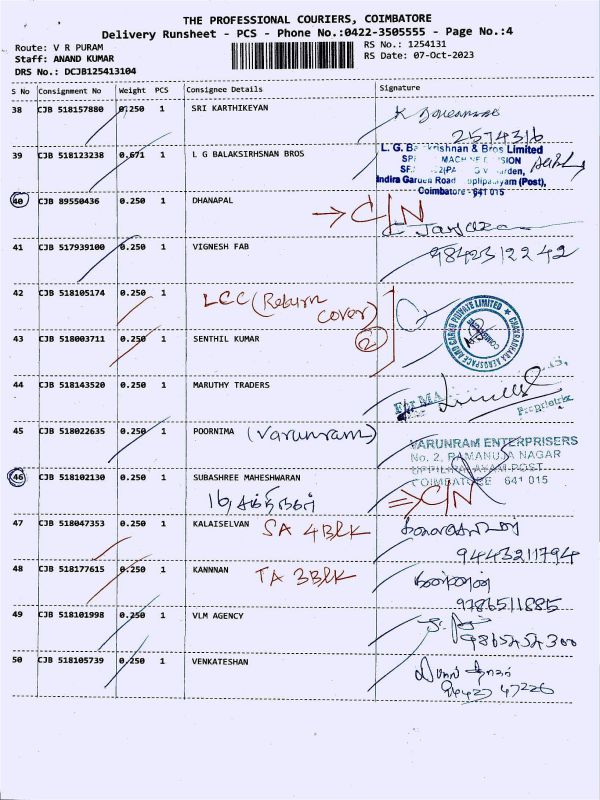 THE PROFESSIONAL COURIERS, COIMBATORE
Delivery Runsheet - PCS - Phone No.:0422-3505555 - Page No.:4
Route: V R PURAM
RS No.: 1254131
Staff: ANAND KUMAR
RS Date: 07-Oct-2023
DRS No.: DCJB125413104
S No Consignment No Weight PCS Consignee Details Signature
38 CJB 518157880 0.250 1 SRI KARTHIKEYAN
2574316
39 CJB 518123238 0.671 1 L G BALAKSIRHSNAN BROS
L. G. Ba & Bros Limited
Indira Garden Road (Post),
Coimbatore - 641 015
40 CJB 89550436 0.250 1 DHANAPAL → C/N
41 CJB 517939100 0.250 1 VIGNESH FAB
9842312242
42 CJB 518105174 0.250 1 LCC (Return
cover)
43 CJB 518003711 0.250 1 SENTHIL KUMAR 2
CHANDRADHARA AEROSPACE AND CARGO PRIVATE LIMITED
COIMBATORE
44 CJB 518143520 0.250 1 MARUTHY TRADERS
For MA
Proprietrix
45 CJB 518022635 0.250 1 POORNIMA (Varunram)
VARUNRAM ENTERPRISERS
No. 2, RAMANUJA NAGAR
UPPILIPALAYAM POST
COIMBATORE 641 015
46 CJB 518102130 0.250 1 SUBASHREE MAHESHWARAN
⇒ C/N
47 CJB 518047353 0.250 1 KALAISELVAN SA 4BLK
9443211794
48 CJB 518177615 0.250 1 KANNNAN TA 3BLK
9786511885
49 CJB 518101998 0.250 1 VLM AGENCY
9865252300
50 CJB 518105739 0.250 1 VENKATESHAN
94427 47226